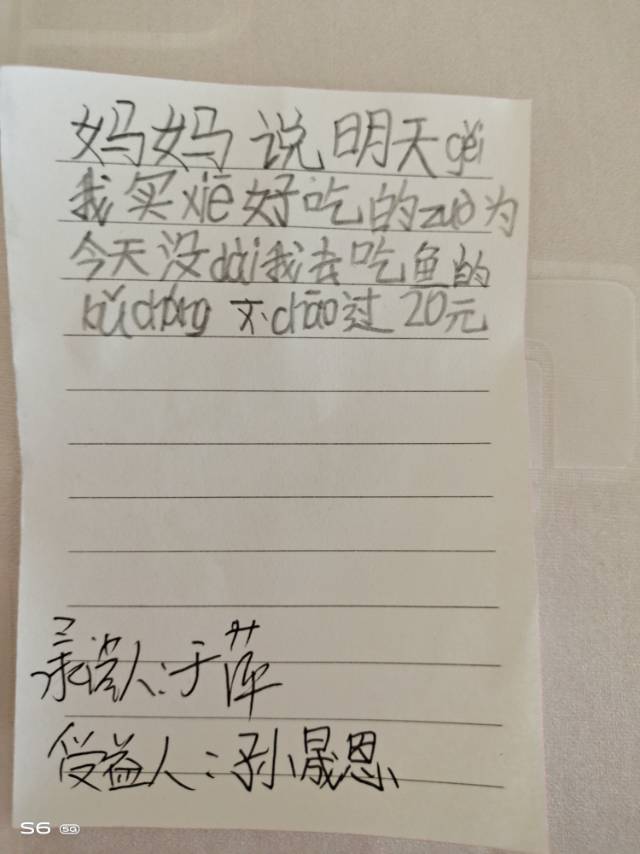 妈妈说明天gěi
我买xiē好吃的zuò为
今天没dài我去吃鱼的
bǔcháng不chāo过20元
承诺人:于萍
受益人:孙晟恩
S6 5G